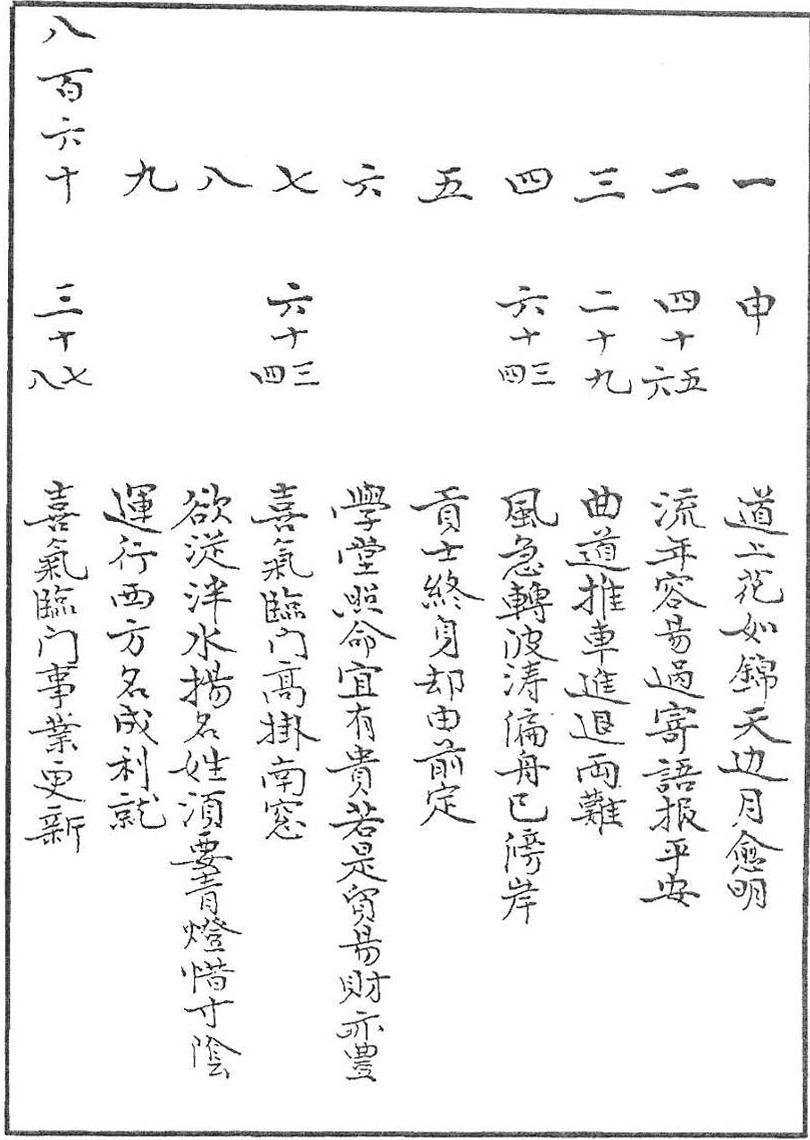 一 申 道上花如錦天边月愈明
二 四十五六 流年容易過寄語报平安
三 二十九 曲道推車進退両難
四 六十三四 風急轉波涛偏舟已滂岸
五 貢士終身却由前定
六 學堂照命宜有貴若是貿易財亦豊
七 六十三四 喜氣臨门高掛南窓
八 欲従泮水揚名姓須要青燈惜寸陰
九 運行西方名成利就
八百六十 三十七八 喜氣臨门事業更新